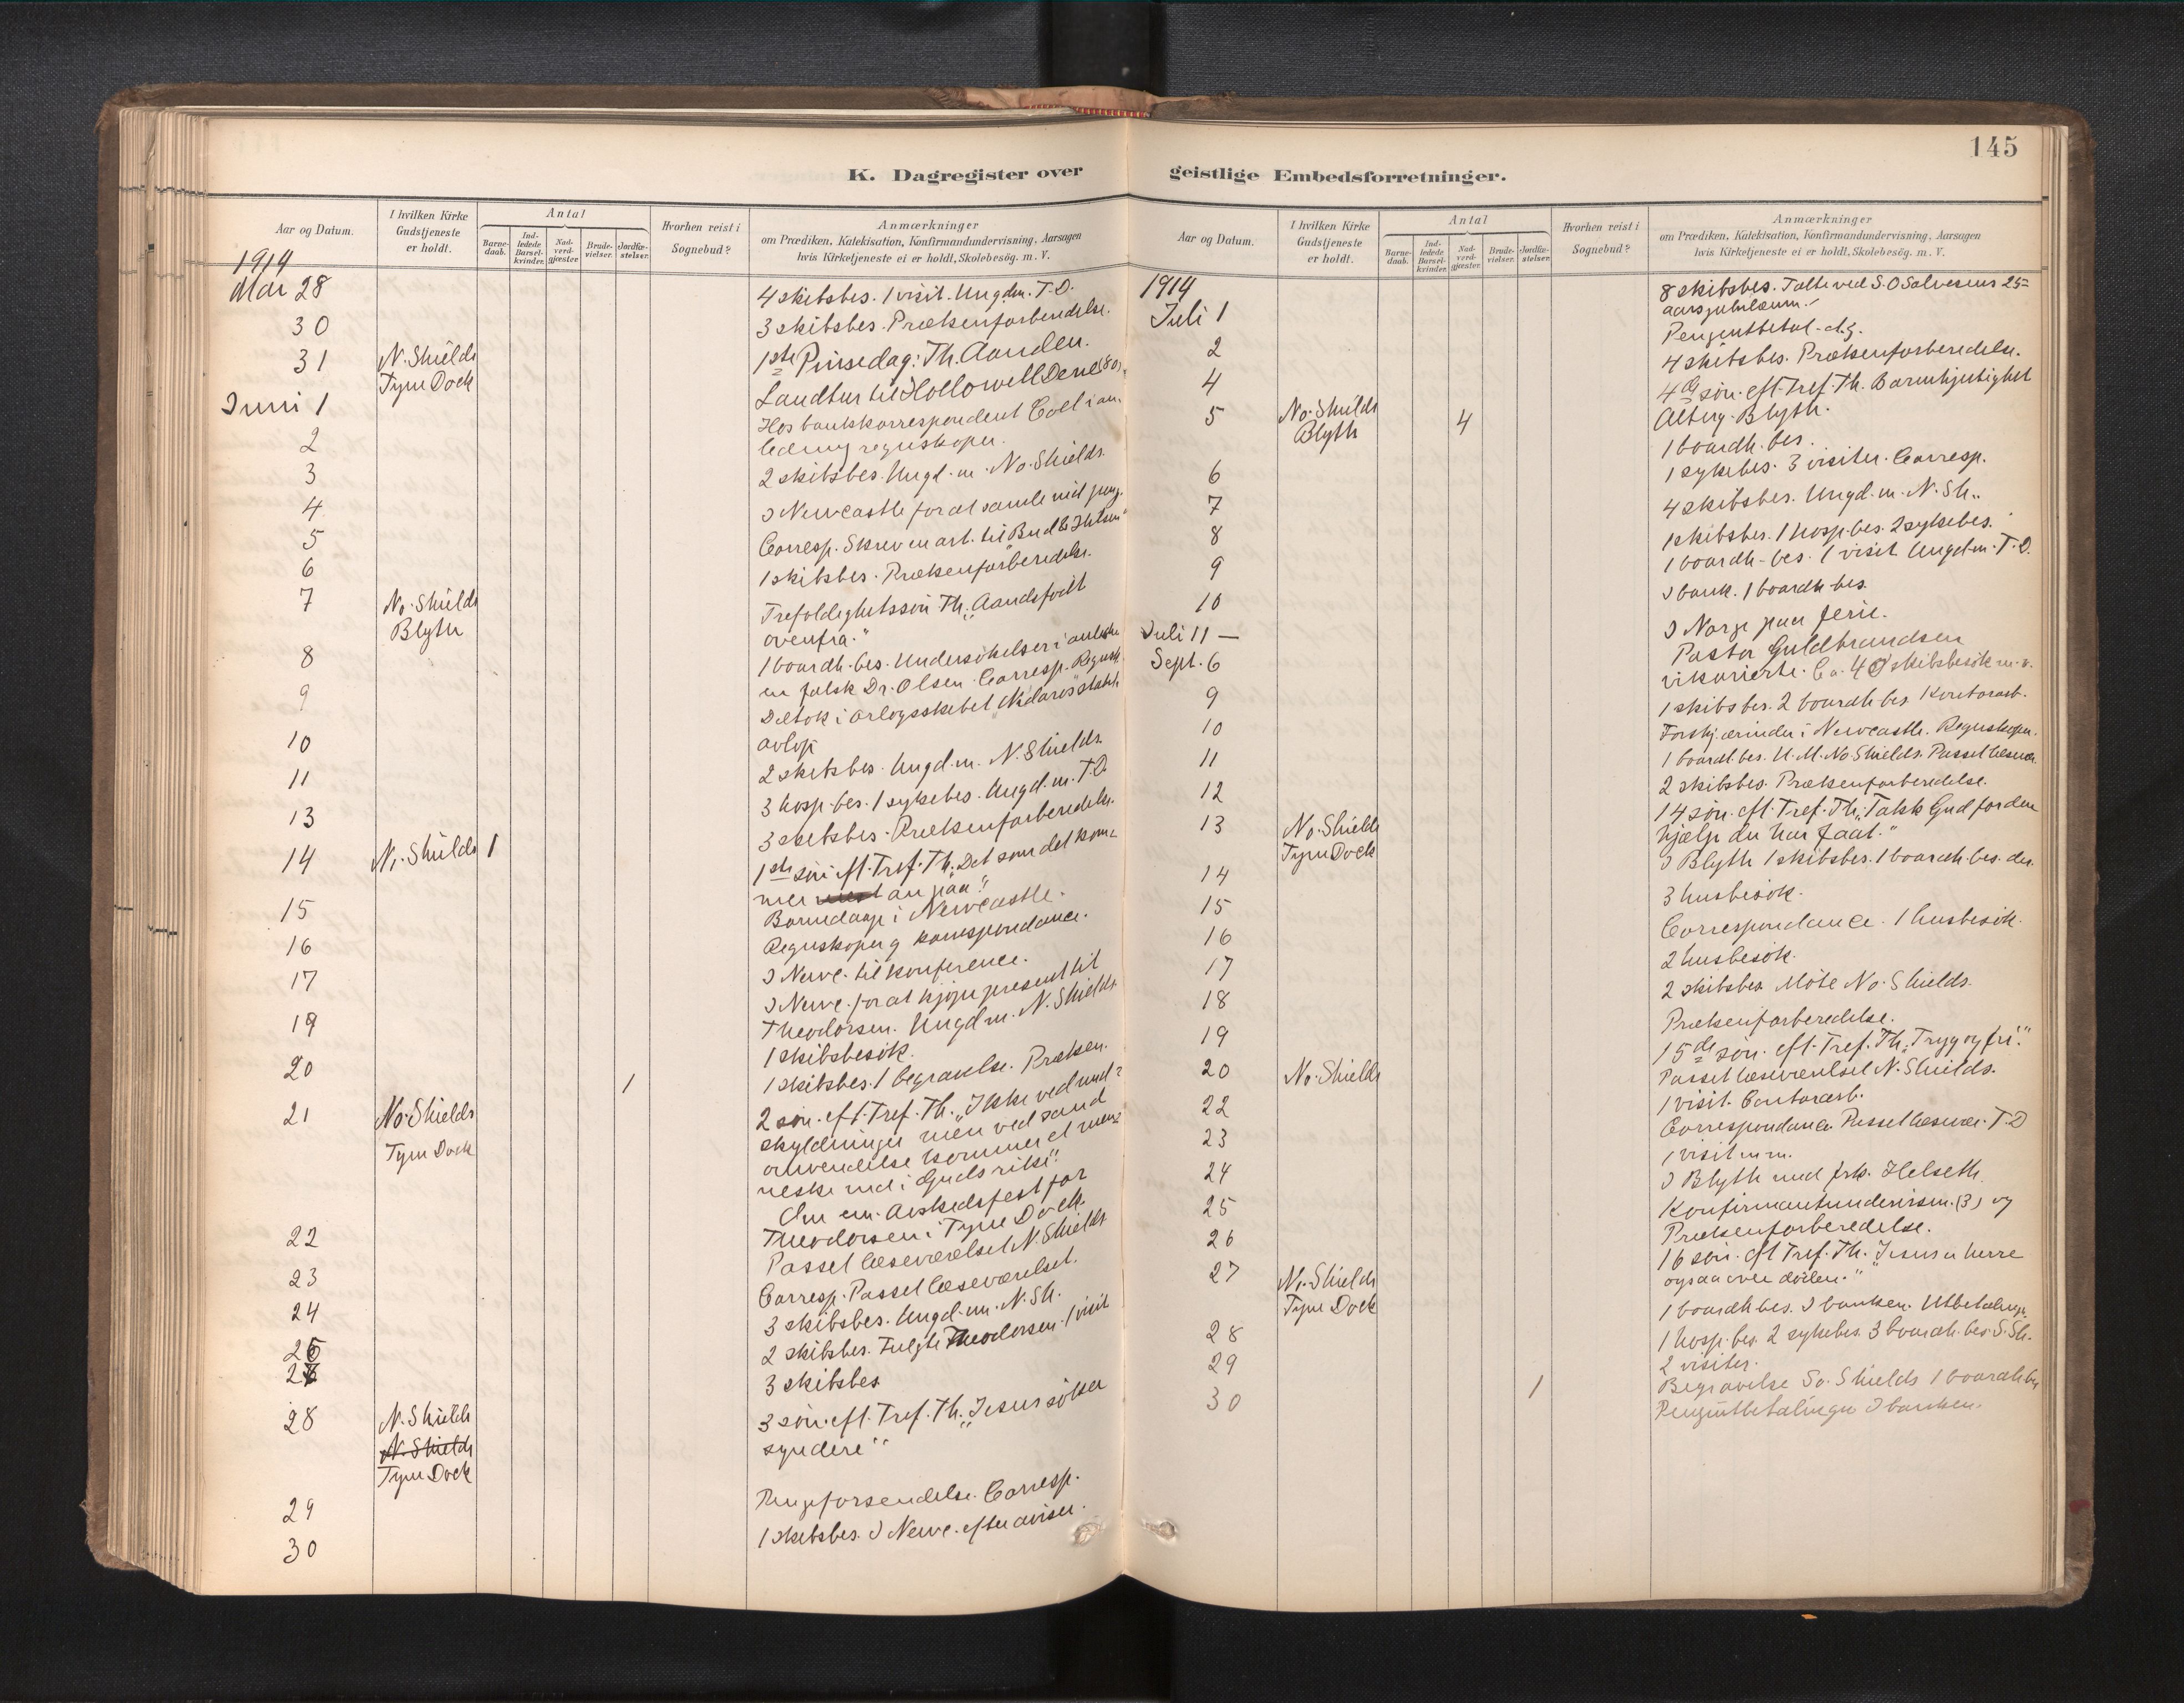 K. Dagregister over
Aar og Datum.
I hvilken Kirke
Gudstjeneste
er holdt.
Antal
Barne-
daab.
Ind-
ledede
Barsel-
kvinder.
Nad-
verd-
gjæster.
Brude-
vielser.
Jordfæ-
stelser.
Hvorhen reist i
Sognebud?
Anmærkninger
om Prædiken, Katekisation, Konfirmandundervisning, Aarsagen
hvis Kirketjeneste ei er holdt, Skolebesög. m. V.
1914
Mai 28 4 skibsbes. 1 visit. Ungdm. T.D.
30 3 skibsbes. Prækenforberedelse.
31 N. Shields 1ste Pinsedag: Th. Aanden.
Tyne Dock
Juni 1 Landtur til Hollowell Dene (80).
2 Hos bankkorrespondent Coll i an-
ledning regnskaper.
3 2 skibsbes. Ungd. m. No. Shields.
4 I Newcastle for at samle ind peng.
5 Corresp. Skrev en art. til "Bud & Hilsen"
6 1 skibsbes. Prækenforberedelse.
7 No. Shields Trefoldighetssön Th. "Aandsfödt
Blyth ovenfra."
8 1 boardh. bes. Undersökelser i anledn.
en falsk Dr. Olsen. Corresp. Regnsk.
9 Deltok i orlogsskibet "Nidaros" stabel-
avlöp
10 2 skibsbes. Ungd. m. N. Shields.
11 3 hosp. bes. 1 sykebes. Ungd. m. T.D.
13 3 skibsbes. Prækenforberedelse.
14 N. Shields 1 1ste sön. eft. Tref. Th. "Det som det kom-
mer an paa".
Barnedaap i Newcastle.
15 Regnskaper og korrespondance.
16 I Newc. til konference.
17 I Newc. for at kjöpe present til
Theodorsen. Ungd m. N. Shields.
19 1 skibsbesök.
20 1 1 skibsbes. 1 begravelse. Præken.
21 No. Shields 2 sön. eft. Tref. Th. "Ikke ved und-
skyldninger men ved sand
Tyne Dock omvendelse kommer et men-
neske ind i Guds rike".
Avskedsfest for
Theodorsen i Tyne Dock.
22 Passet læseværelset N. Shields
23 Corresp. Passet læseværelset.
24 3 skibsbes. Ungd. m. N. Sh.
26 2 skibsbes. Fulgte Theodorsen. 1 visit
27 3 skibsbes
28 N. Shields 3 sön. eft. Tref. Th. "Jesus söker
N. Shields syndere"
Tyne Dock
29 Pengeforsendelse. Corresp.
30 1 skibsbes. I Newc. efter aviser.
145
geistlige Embedsforretninger.
Aar og Datum.
I hvilken Kirke
Gudstjeneste
er holdt.
Antal
Barne-
daab.
Ind-
ledede
Barsel-
kvinder.
Nad-
verd-
gjæster.
Brude-
vielser.
Jordfæ-
stelser.
Hvorhen reist i
Sognebud?
Anmærkninger
om Prædiken, Katekisation, Konfirmandundervisning, Aarsagen
hvis Kirketjeneste ei er holdt, Skolebesög. m. V.
1914
Juli 1 8 skibsbes. Talte ved S. O Salvesens 25=
aarsjubilæum.
2 Pengeutbetal.
4 4 skibsbes. Prækenforberedelse.
5 No. Shields 4 4de sön. eft. Tref. Th. Barmhjertighet
Blyth Altterg. Blyth.
6 1 boardh. bes.
7 1 sykebes. 3 visiter. Corresp.
8 4 skibsbes. Ungd. m. N. Sh.
9 1 skibsbes. 1 hosp. bes. 2 sykebes.
10 1 boardh. bes. 1 visit Ungd m. T.D.
I bank. 1 boardh. bes.
Juli 11 — I Norge paa ferie.
Sept. 6 Pastor Guldbrandsen
vikarierte. Ca. 40 skibsbesök m. v.
9 1 skibsbes. 2 boardh. bes. Kontorarb.
10 Forskj. ærinder i Newcastle. Regnskaper.
11 1 boardh. bes. U. M. No. Shields. Passet læsevær.
12 2 skibsbes. Prækenforberedelse.
13 No. Shields 14 sön. eft. Tref. Th. "Takk Gud for den
Tyne Dock hjælp du har faat."
14 I Blyth 1 skibsbes. 1 boardh. bes. der.
15 3 husbesök.
16 Correspondance. 1 husbesök.
17 2 husbesök.
18 2 skibsbes Möte No. Shields.
19 Prækenforberedelse.
20 No. Shields 15de sön. eft. Tref. Th. "Tryg og fri."
22 Passet læseværelset N. Shields.
23 1 visit. Contorarb.
24 Correspondance Passet læsevær. T.D
25 1 visit m m.
26 I Blyth med frk. Helseth.
Konfirmantundervisn. (3) og
Prækenforberedelse.
27 No. Shields 16 sön. eft Tref. Th. "Jesus er herre
Tyne Dock ogsaa over döden."
28 1 boardh bes. I banken. Utbetalinger
29 1 hosp. bes. 2 sykebes. 3 boardh. bes. S. Sh.
2 visiter.
30 1 Begravelse So. Shields 1 boardh bes
Pengeutbetalinger I banken.